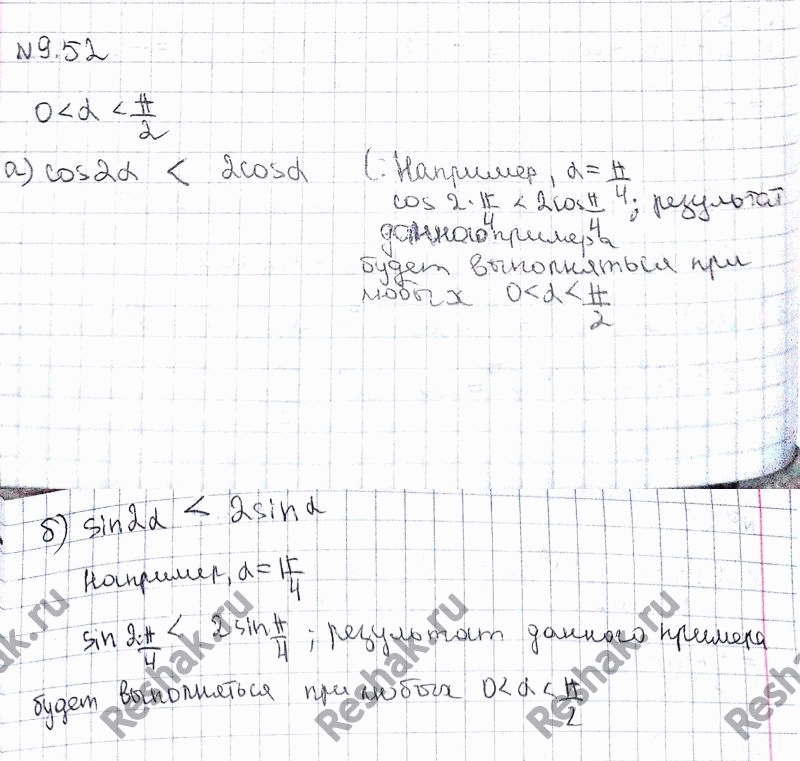 №9.52
0<α<π/2
а) cos2α < 2cosα
(: Например, α=π/4
cos 2·π/4 < 2cos π/4; результат
данного примера
будет выполняться при
любых 0<α<π/2
б) sin2α < 2sinα
Например, α=π/4
sin 2·π/4 < 2sin π/4; результат данного примера
будет выполняться при любых 0<α<π/2
Reshak.ru
Reshak.ru
Reshak.ru
Reshak.ru
Reshak.ru